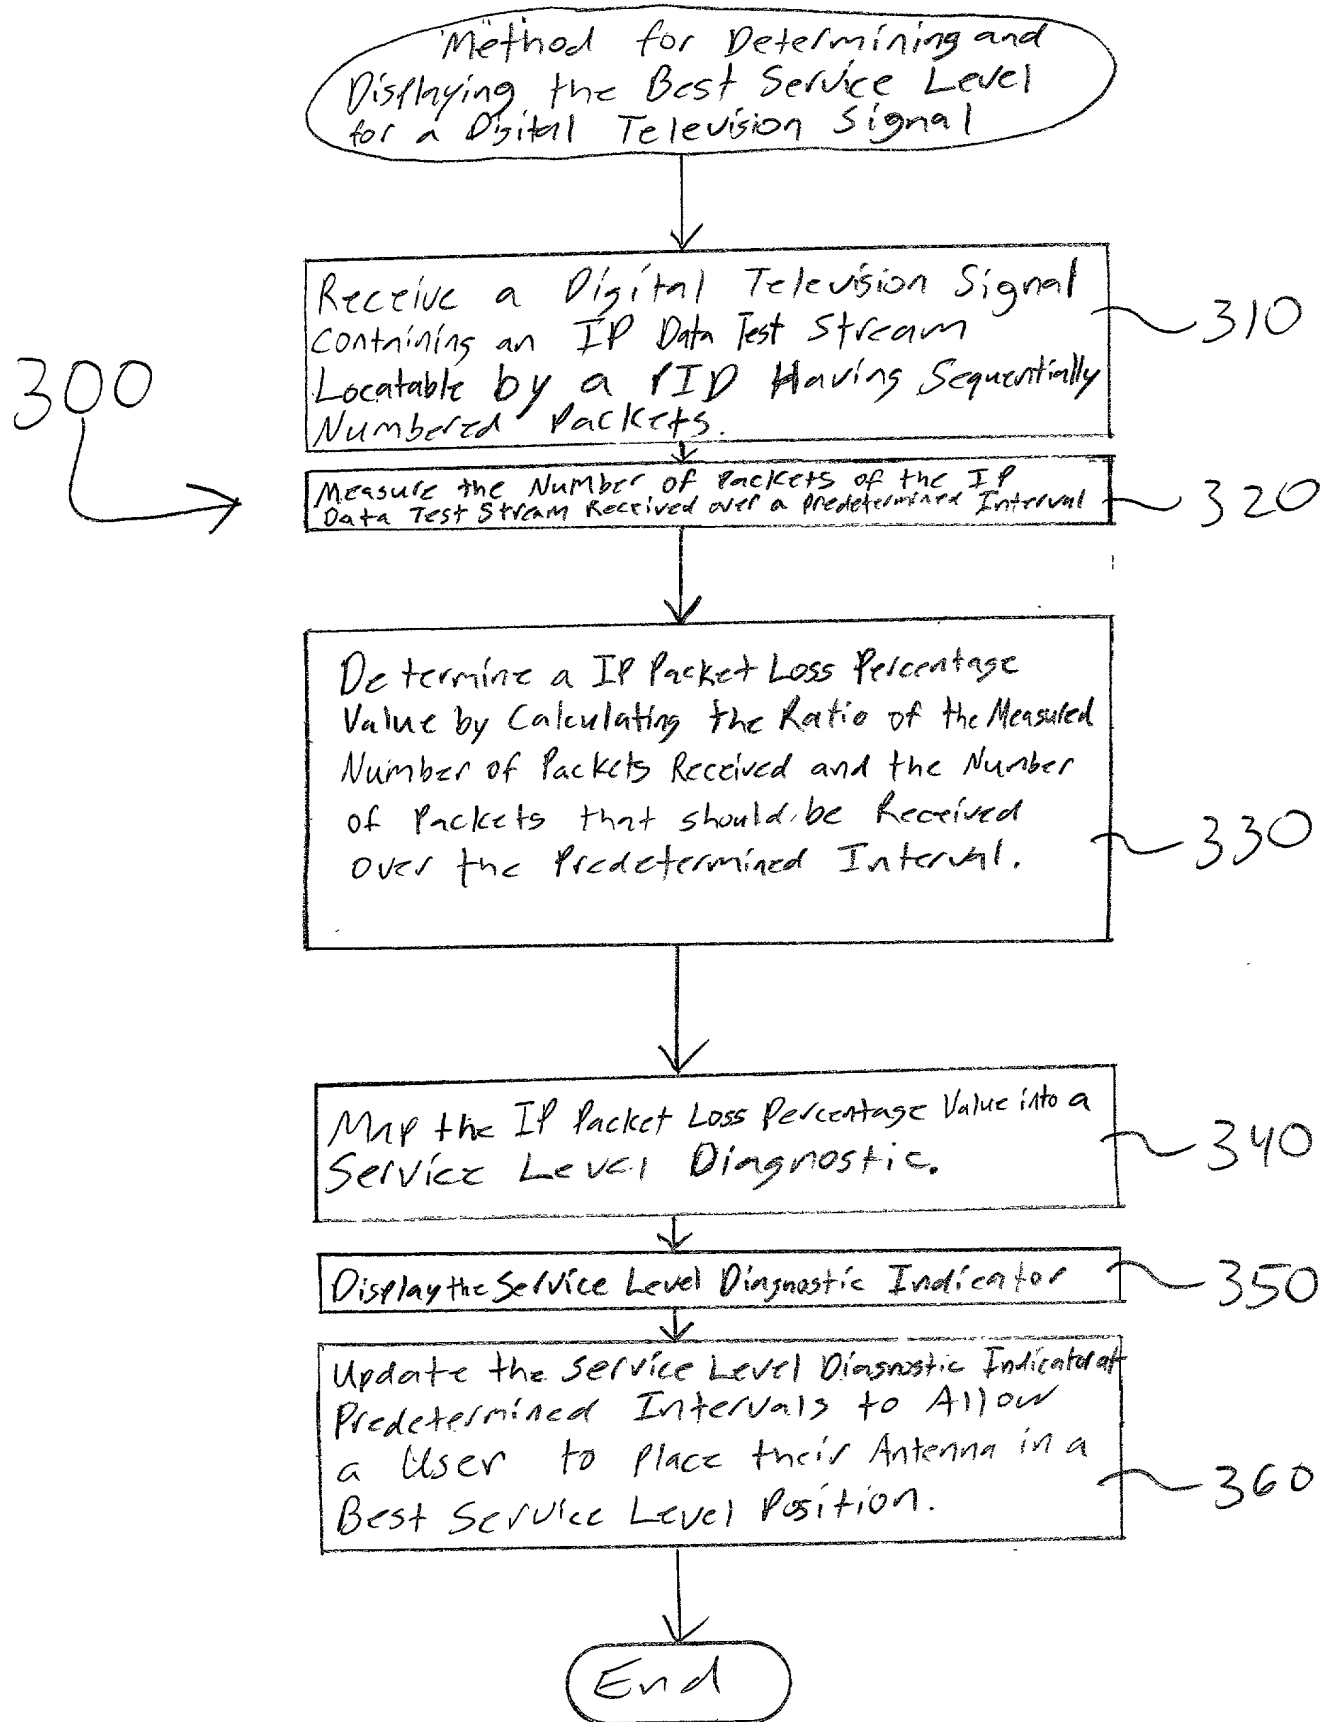 Method for Determining and
Displaying the Best Service Level
for a Digital Television Signal
Receive a Digital Television Signal
Containing an IP Data Test Stream
Locatable by a PID Having Sequentially
Numbered Packets.
310
300
Measure the Number of Packets of the IP
Data Test Stream Received over a Predetermined Interval
320
Determine a IP Packet Loss Percentage
Value by Calculating the Ratio of the Measured
Number of Packets Received and the Number
of Packets that should be Received
over the Predetermined Interval.
330
Map the IP Packet Loss Percentage Value into a
Service Level Diagnostic.
340
Display the Service Level Diagnostic Indicator
350
Update the Service Level Diagnostic Indicator at
Predetermined Intervals to Allow
a User to Place their Antenna in a
Best Service Level Position.
360
End